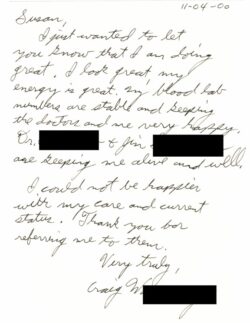 11-04-00
Susan,
I just wanted to let
you know that I am doing
great. I look great, my
energy is great. My blood lab
numbers are stable and keeping
the doctors and me very happy.
Dr. & Jim
are keeping me alive and well.
I could not be happier
with my care and current
status. Thank you for
referring me to them.
Very truly,
Craig W